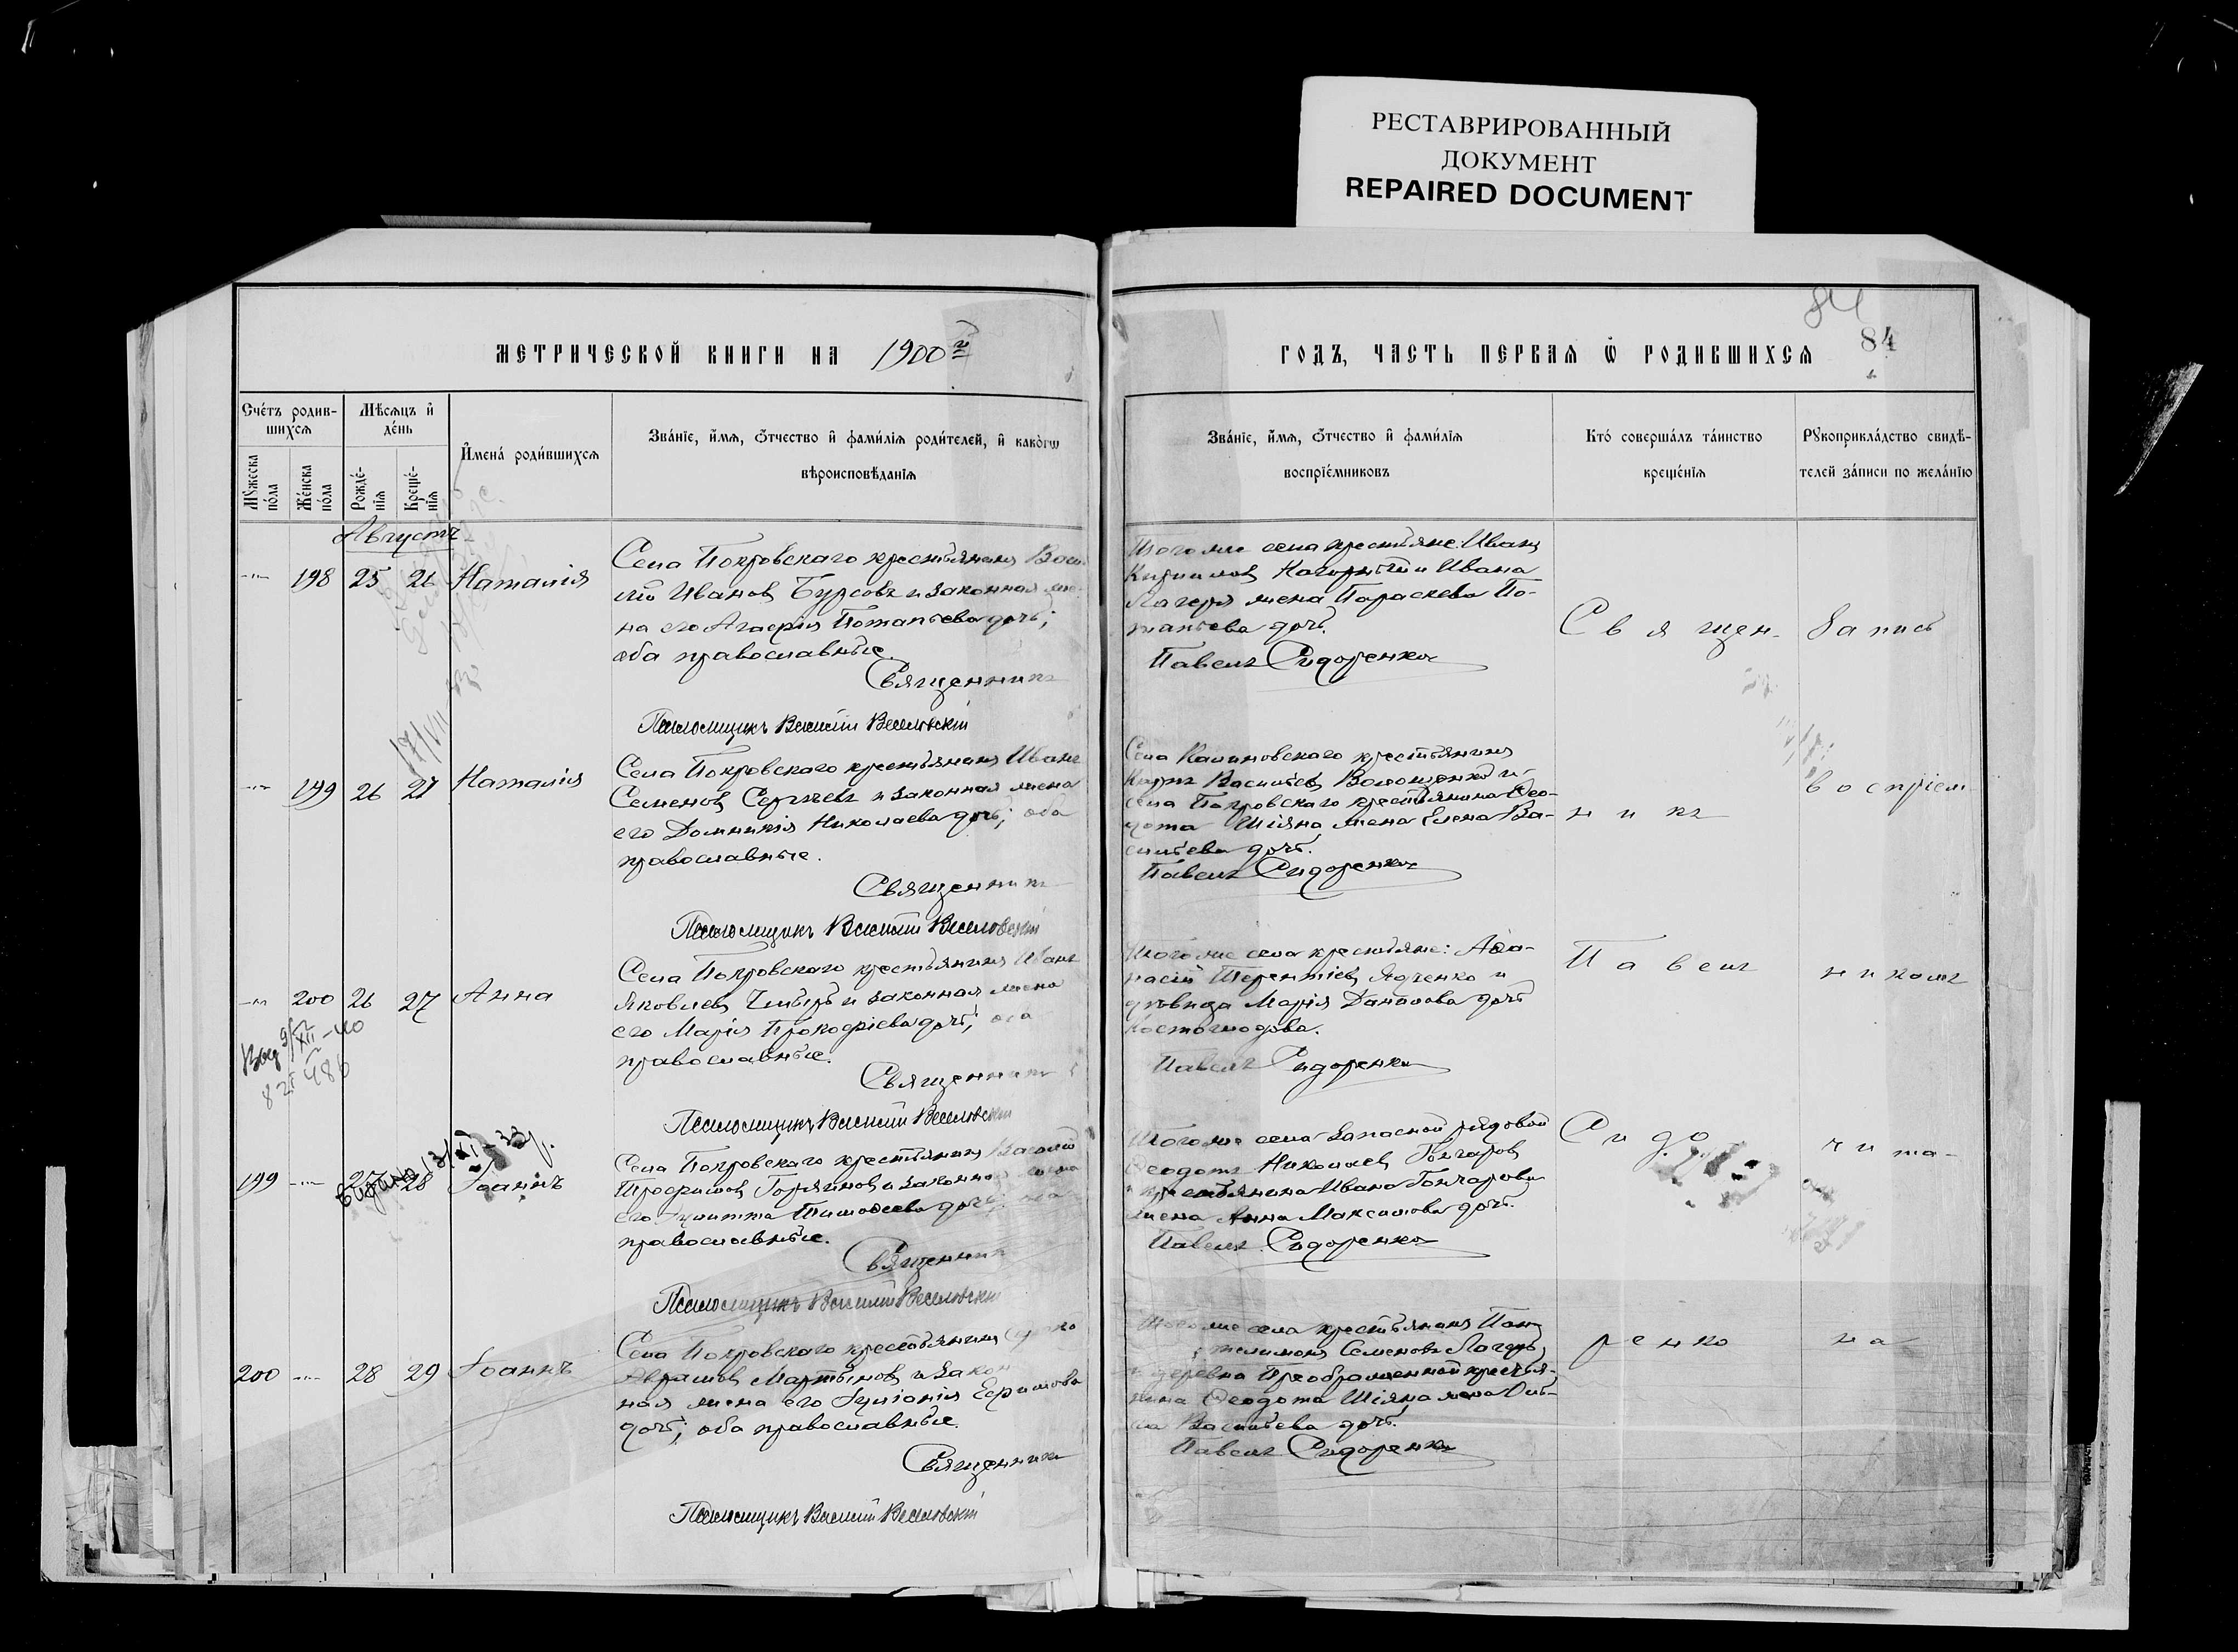 РЕСТАВРИРОВАННЫЙ
ДОКУМЕНТ
REPAIRED DOCUMENT
84
84
МЕТРИЧЕСКОЙ КНИГИ НА 1900й
ГОДЪ, ЧАСТЬ ПЕРВАЯ Ѿ РОДИВШИХСЯ
Счéтъ родив-
шихсѧ
Мѣсѧцъ и҆
дéнь
Мꙋжеска
пóла
Жéнска
пóла
Рождé-
нїѧ
Крещé-
нїѧ
И҆менá роди́вшихсѧ
Звáнїе, и҆́мѧ, ѻ҆́тчество и҆ фами́лїѧ роди́телей, и҆ какóгѡ
вѣроисповѣ́данїѧ
Звáнїе, и҆́мѧ, ѻ҆́тчество и҆ фами́лїѧ
воспрїéмниковъ
Ктó совершáлъ тáинство
крещéнїѧ
Рꙋкоприклáдство свидѣ́-
телей зáписи по желáнїю
Августъ
198 25 26 Наталія
Села Покровскаго крестьянинъ Васи-
лій Ивановъ Бурсовъ и законная же-
на его Агафія Потапіева дочь;
оба православные.
Священникъ
Псаломщикъ Василій Веселовскій
Того же села крестьяне: Иванъ
Кириловъ Нагорный и Ивана
Лагеря жена Параскева По-
тапіева дочь.
Павелъ Сидоренко
Священ-
Запись
199 26 27 Наталія
Села Покровскаго крестьянинъ Иванъ
Семеновъ Сергѣевъ и законная жена
его Домникія Николаева дочь; оба
православные.
Священникъ
Псаломщикъ Василій Веселовскій
Села Калиновскаго крестьянинъ
Карпъ Васильевъ Волошенко и
села Покровскаго крестьянина Ѳео-
дота Шіяна жена Елена Ва-
сильева дочь.
Павелъ Сидоренко
никъ
воспріем-
200 26 27 Анна
Села Покровскаго крестьянинъ Иванъ
Яковлевъ и законная жена
его Марія Прокофіева дочь; оба
православные.
Священникъ
Псаломщикъ Василій Веселовскій
Того же села крестьяне: Аѳа-
насій Терентіевъ Ядченко и
дѣвица Марія Данилова дочь
Костоглодова.
Павелъ Сидоренко
Павелъ
никомъ
486
199 27 28 Іоаннъ
Села Покровскаго крестьянинъ Василій
Трофимовъ Горяиновъ и законная жена
его Іулитта Тимоѳеева дочь; оба
православные.
Священникъ
Псаломщикъ Василій Веселовскій
Того же села запасной рядовой
Ѳеодотъ Николаевъ Гончаровъ
и крестьянина Ивана Гончарова
жена Анна Максимова дочь.
Павелъ Сидоренко
Сидо
чита-
200 28 29 Іоаннъ
Села Покровскаго крестьянинъ
Аврамовъ Мартыновъ и закон-
ная жена его Іуліанія Ефимова
дочь; оба православные.
Священникъ
Псаломщикъ Василій Веселовскій
Того же села крестьянинъ Пан-
телимонъ Семеновъ Лагерь,
и деревни Преображенной крестья-
нина Ѳеодота Шіяна жена Оль-
га Васильева дочь.
Павелъ Сидоренко
ренко
на